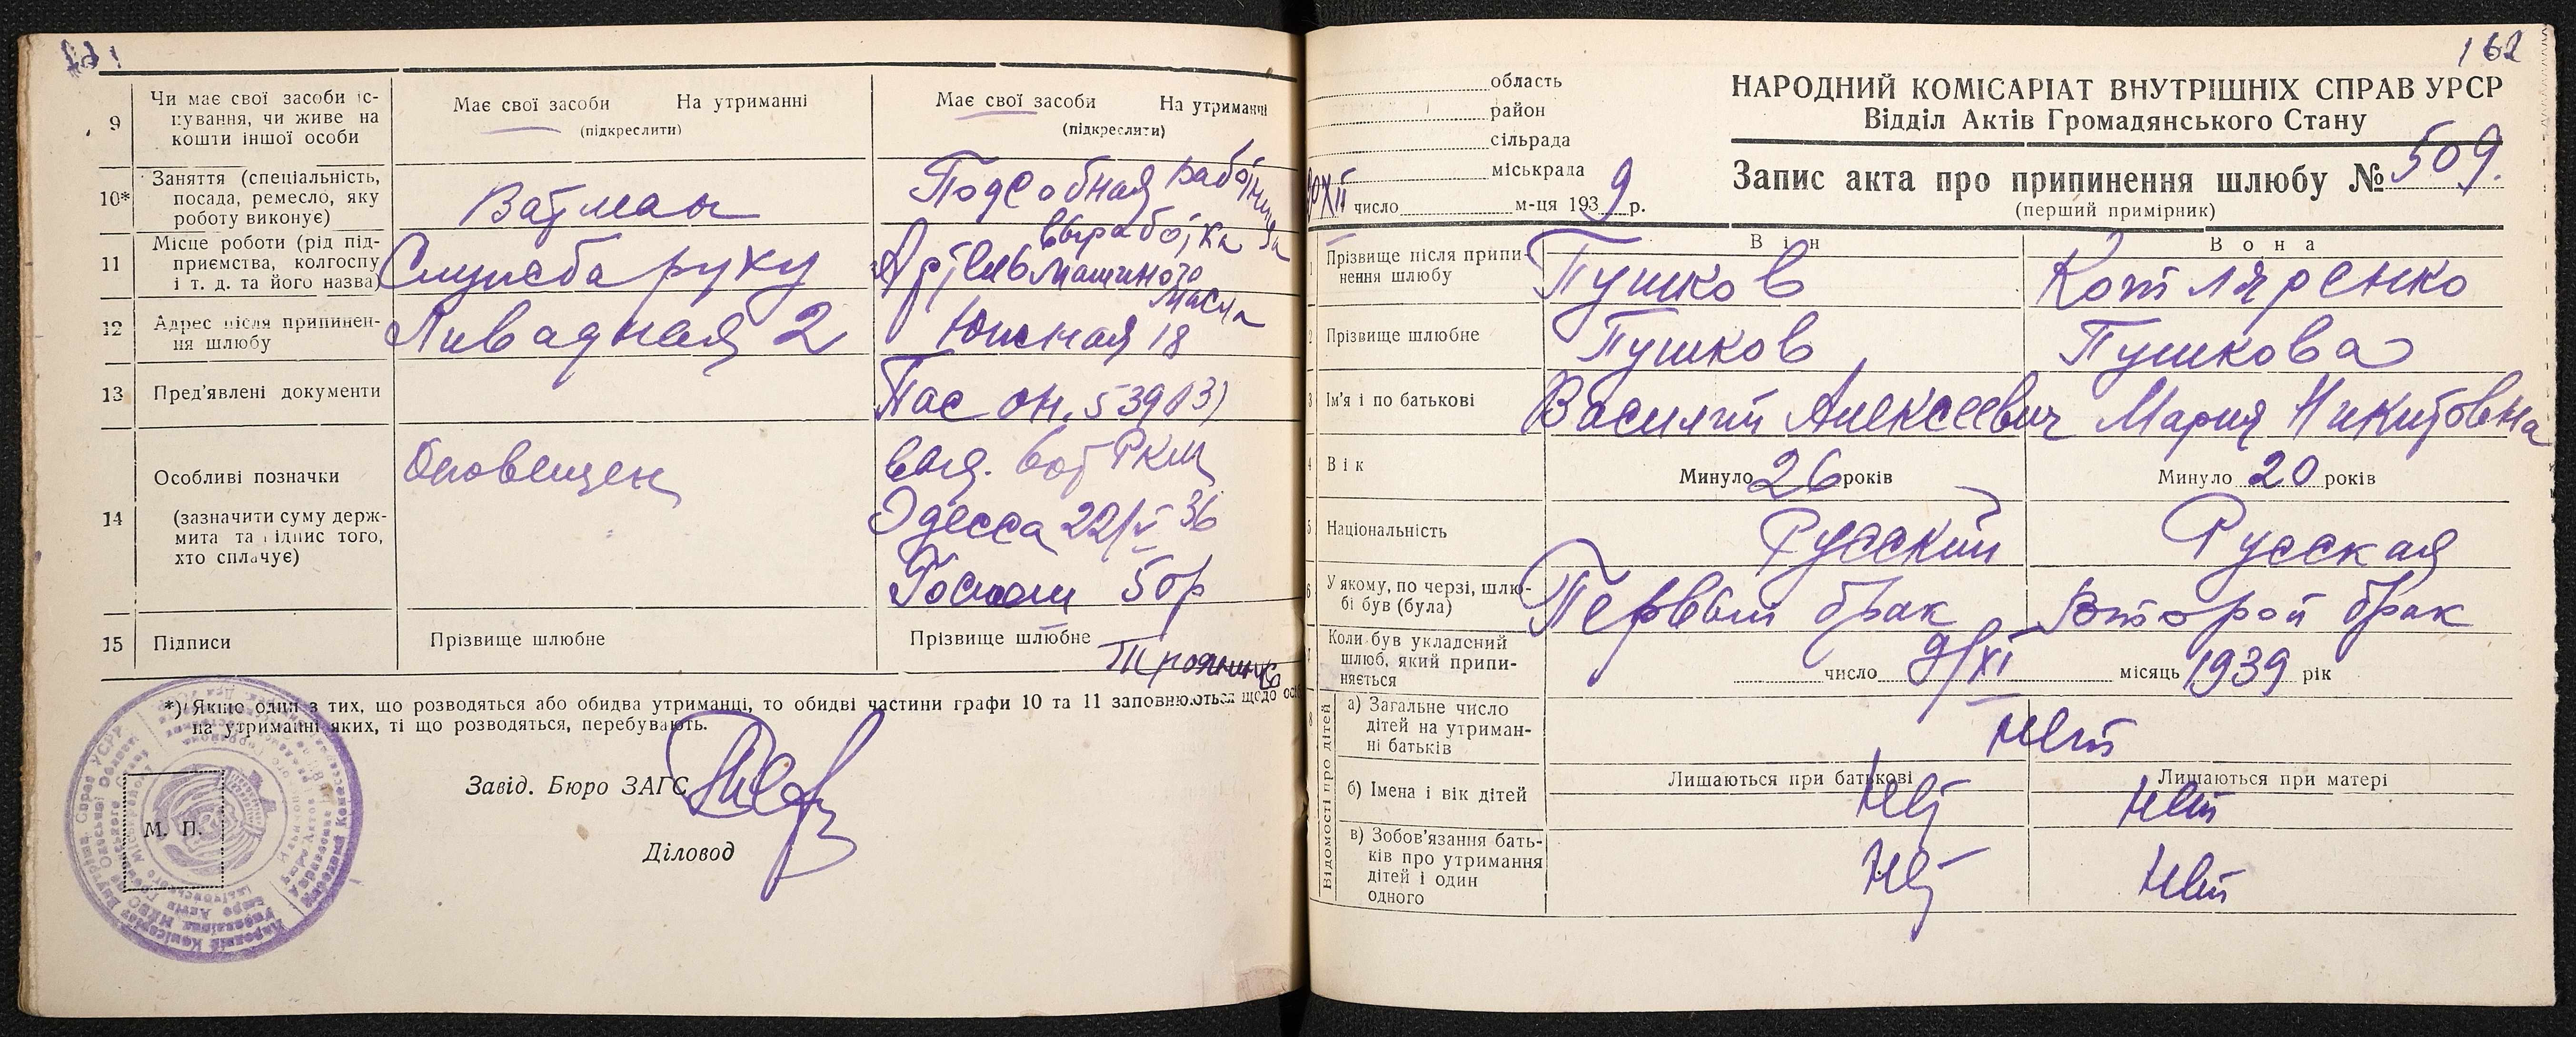 9
Чи має свої засоби іс-
нування, чи живе на
кошти іншої особи
Має свої засоби На утриманні
(підкреслити)
Має свої засоби На утриманні
(підкреслити)
10*
Заняття (спеціальність,
посада, ремесло, яку
роботу виконує)
Ватман
Подсобная работница
11
Місце роботи (рід під-
приємства, колгоспу
і т. д. та його назва)
Служба руху
Артель выработка
машиного
масла
12
Адрес після припинен-
ня шлюбу
Ливадная 2
Южная 18
13
Пред’явлені документи
Пас он. 539131
14
Особливі позначки
(зазначити суму держ-
мита та підпис того,
хто сплачує)
Оповещен
выд. РКМ
Одесса 22/V 36
Госпош 50р
15
Підписи
Прізвище шлюбне
Прізвище шлюбне
*) Якщо один з тих, що розводяться або обидва утриманці, то обидві частини графи 10 та 11 заповнюються щодо осіб
на утриманні яких, ті що розводяться, перебувають.
Завід. Бюро ЗАГС
Діловод
М. П.
162
область
район
сільрада
міськрада
30XII число м-ця 1939 р.
НАРОДНИЙ КОМІСАРІАТ ВНУТРІШНІХ СПРАВ УРСР
Відділ Актів Громадянського Стану
Запис акта про припинення шлюбу № 509.
(перший примірник)
Він
Вона
1
Прізвище після припи-
нення шлюбу
Пушков
Котляренко
2
Прізвище шлюбне
Пушков
Пушкова
3
Ім’я і по батькові
Василий Алексеевич
Мария Никитовна
4
Вік
Минуло 26 років
Минуло 20 років
5
Національність
Русский
Русская
6
У якому, по черзі, шлю-
бі був (була)
Первый брак
Второй брак
7
Коли був укладений
шлюб, який припи-
няється
число 9/XI місяць 1939 рік
8
Відомості про дітей
а) Загальне число
дітей на утриман-
ні батьків
нет
б) Імена і вік дітей
Лишаються при батькові
нет
Лишаються при матері
нет
в) Зобов’язання бать-
ків про утримання
дітей і один
одного
нет
нет